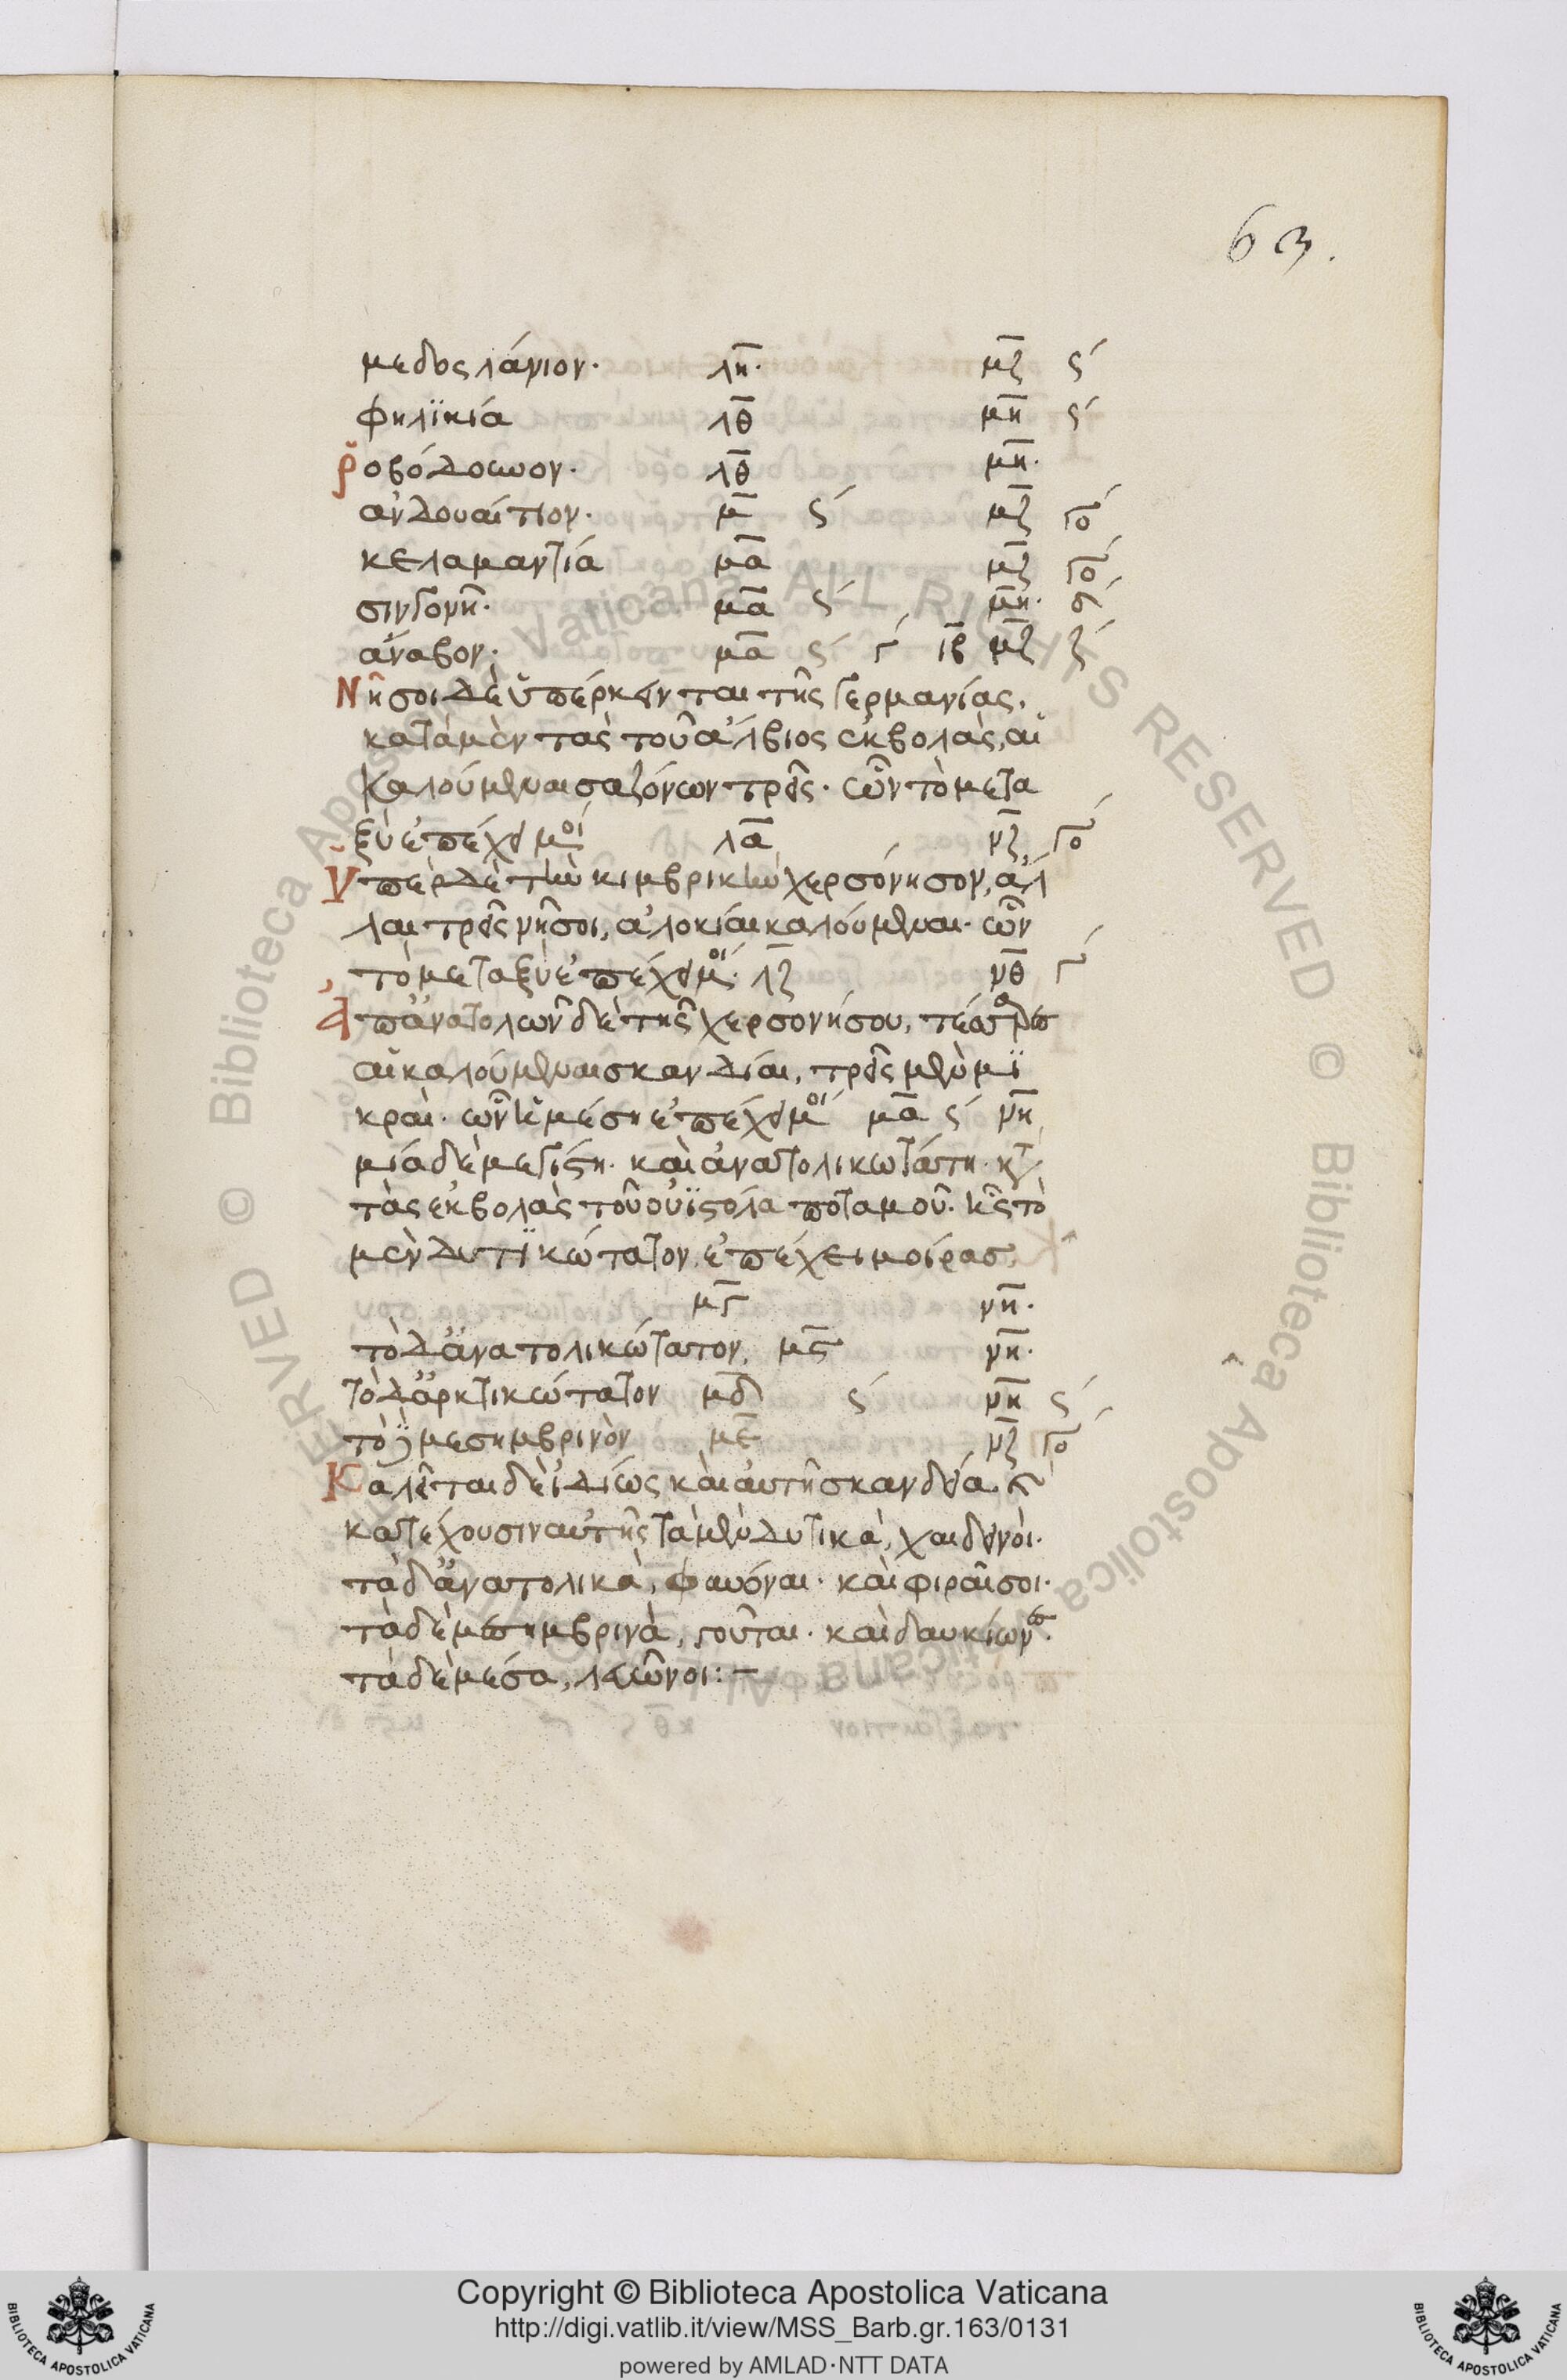 63.
μεδοςλάνιον· λη· μζ ς´
φηλϊκιά λθ μη ς´
ῥοβόδουνον· λθ μη·
ἀνδουαίτιον· μ ς´ μζ γο´
κελαμαντία μα μζ γο´
σινγονῆ· μα ς´ μη· δ´
ἄναβον· μα ς´ γ´ ιβ μζ ζ´
Νῆσοι δὲ ὑπέρκεινται τῆς Γερμανίας,
κατὰ μὲν τὰς τοῦ ἄλβιος ἐκβολὰς, αἱ
καλούμεναι σαξόνων τρεῖς· ὧν τὸ μετα
ξὺ ἐπέχει μοί λα νζ γο´
Ὑπὲρ δὲ τὴν κιμβρικὴν χερσόνησον, ἄλ
λαι τρεῖς νῆσοι, ἀλοκίαι καλούμεναι· ὧν
τὸ μεταξὺ ἐπέχει μοί· λζ νθ γ´
Ἀπ' ἀνατολῶν δὲ τῆς χερσονήσου, τέσσαρες
αἱ καλούμεναι σκανδίαι, τρεῖς μὲν μϊ
κραὶ· ὧν ἡ μέση ἐπέχει μοί μα ς´ νη
μία δὲ μεγίςη· καὶ ἀνατολικωτάτη· κτ
τὰς ἐκβολὰς τοῦ οὐϊςούλα ποταμοῦ· ἧς τὸ
μὲν δυτϊκώτατον, ἐπέχει μοίρασ,
μγ νη·
τὸ δ' ἀνατολικώτατον, μς νη·
τὸ δ' ἀρκτικώτατον μδ ς´ νη ς´
τὸ δὲ μεσημβρινὸν με νζ γο´
Καλεῖται δὲ ἰδίως καὶ αὐτὴ σκανδεία. καὶ
κατέχουσιν αὐτῆς τὰ μὲν δυτικὰ, χαιδεινοὶ·
τὰ δ' ἀνατολικὰ, φαυόναι· καὶ φιραῖσοι·
τὰ δὲ μεσημβρινὰ, γοῦται· καὶ δαυκίωνες·
τὰ δὲ μέσα, λευῶνοι:–
Copyright © Biblioteca Apostolica Vaticana
http://digi.vatlib.it/view/MSS_Barb.gr.163/0131
powered by AMLAD·NTT DATA